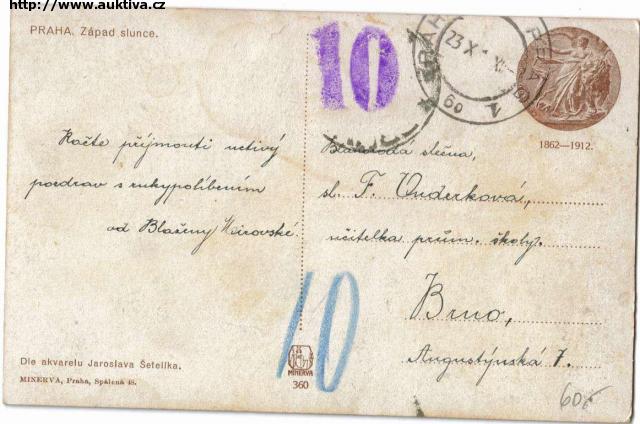 http://www.auktiva.cz
PRAHA. Západ slunce.
10
PRAHA
23 X
1
1862—1912.
Račte přijmouti uctivý
pozdrav s rukypolíbením
od Blaženy
Blahorodá slečna,
sl. F. Onderková,
učitelka prům. školy.
Brno,
Augustýnská 7.
10
Dle akvarelu Jaroslava Šetelíka.
MINERVA, Praha, Spálená 48.
MINERVA
360
60